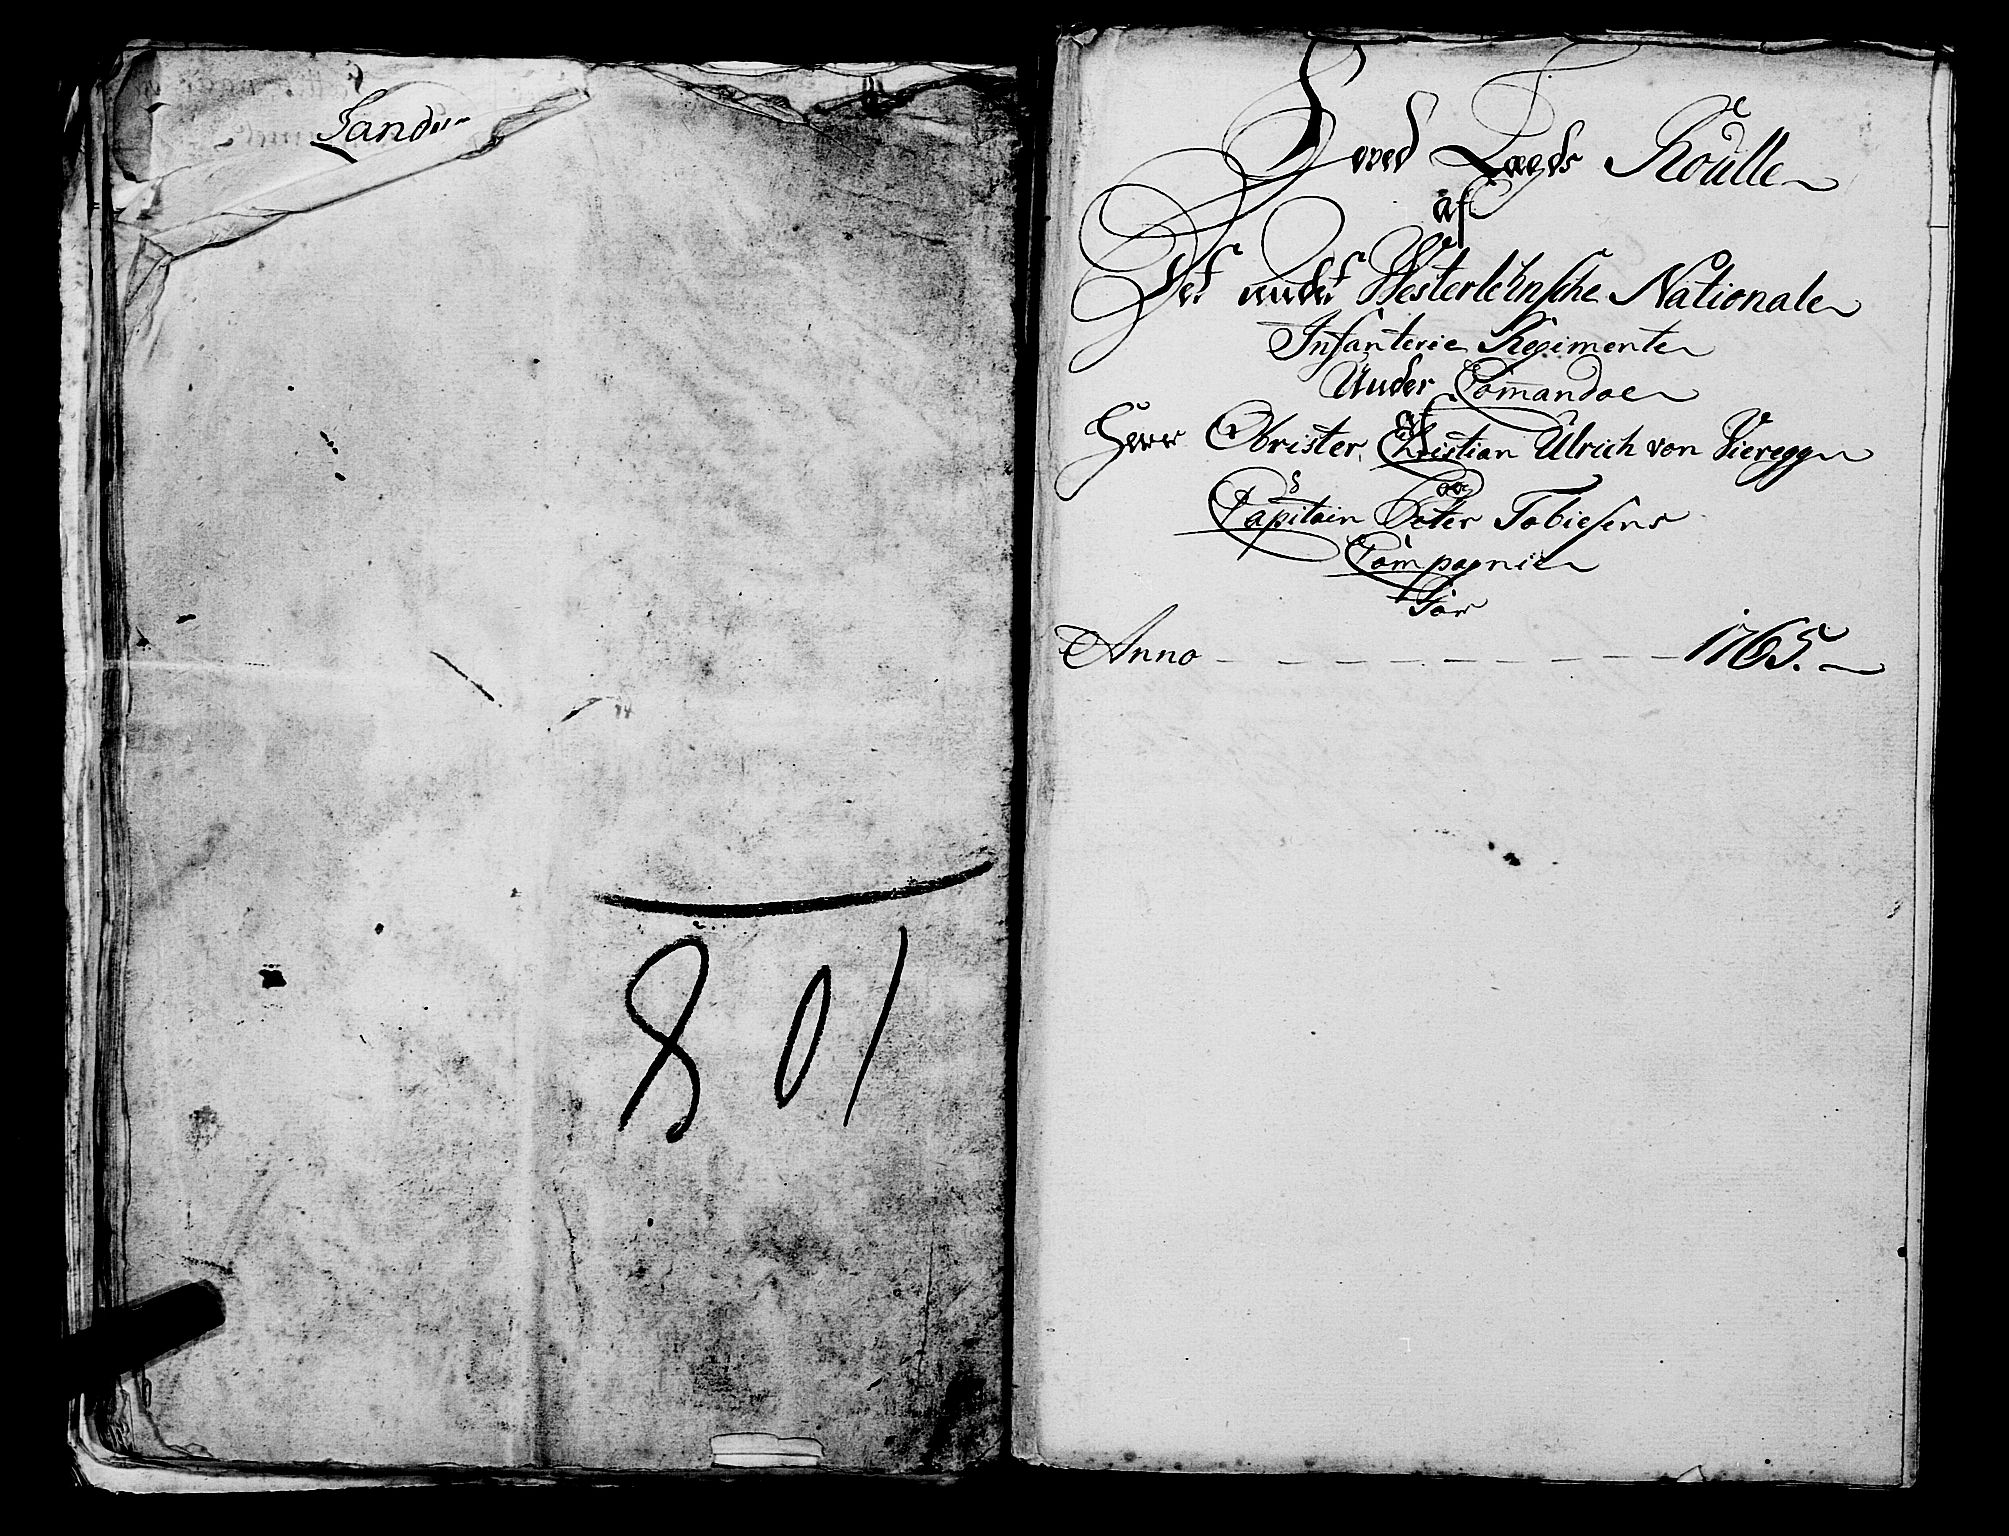 Hoved Lægds Roulle
af
Det andet Westerlehnsche Nationale
Infanterie Regimente
Under Commandoe
af
Herr Obrister Christian Ulrich von Vieregg
og
Capitain Peter Tobiesens
Compagnie
For
Anno - - - - - - - - 1765.
801